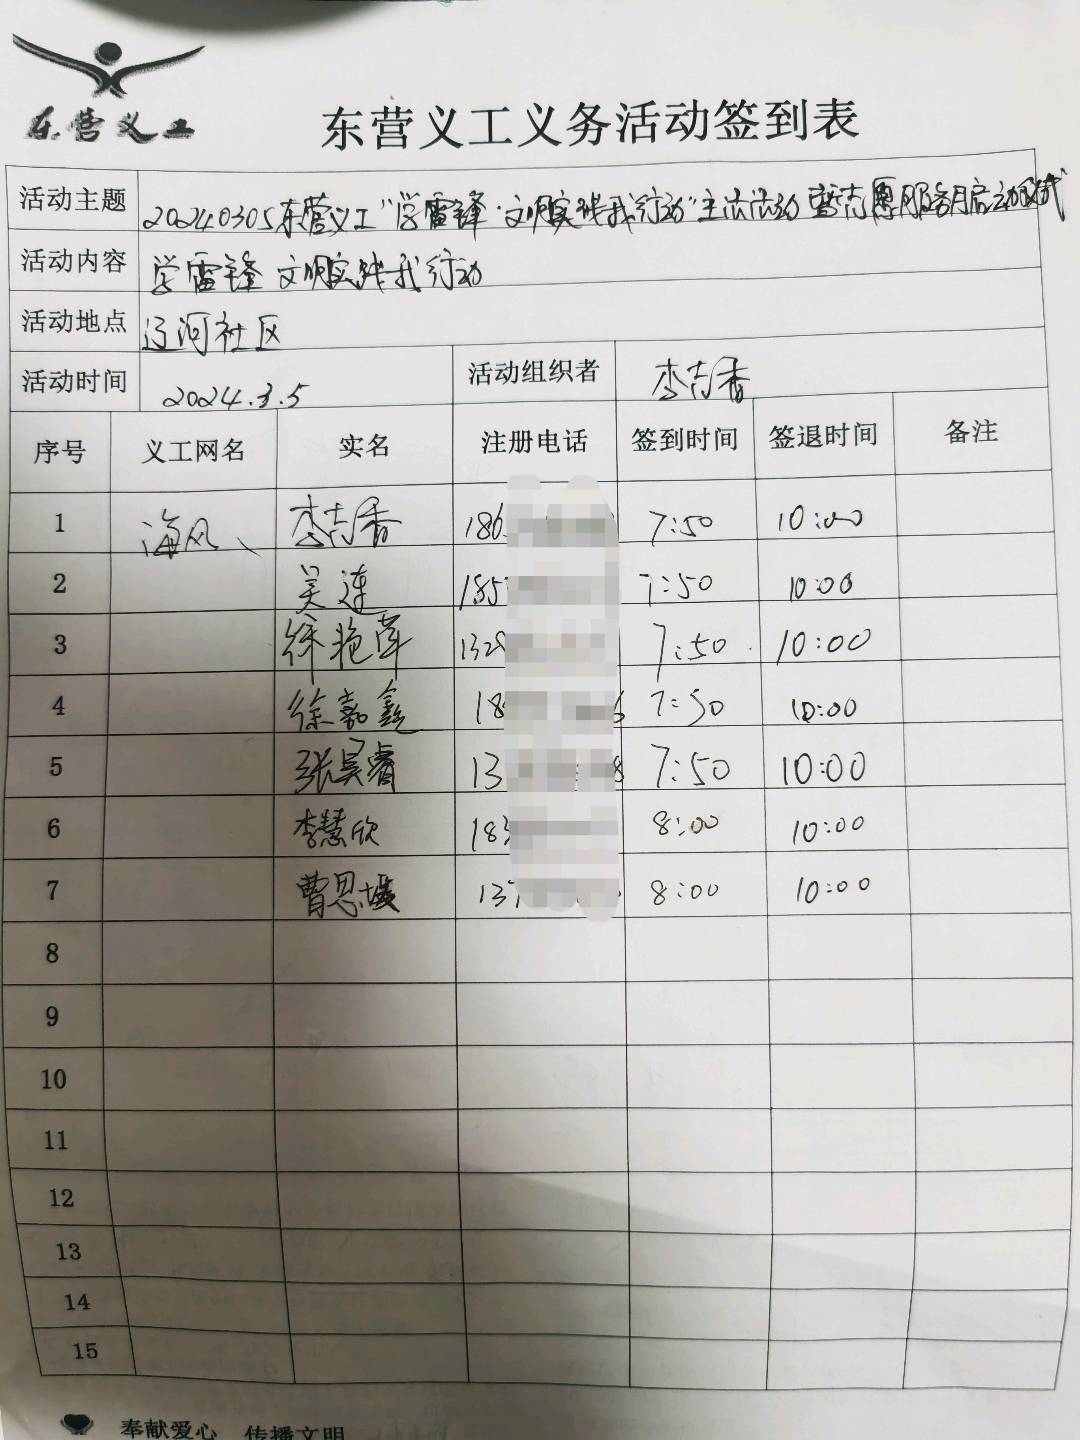 东营义工
东营义工义务活动签到表
活动主题 20240305东营义工"学雷锋·文明实践我行动"主法活动暨志愿服务月启动仪式
活动内容 学雷锋 文明实践我行动
活动地点 辽河社区
活动时间 2024.3.5 活动组织者 李志香
序号 义工网名 实名 注册电话 签到时间 签退时间 备注
1 海风 李志香 186 7:50 10:00
2 吴连 185 7:50 10:00
3 徐艳萍 132 7:50 10:00
4 徐嘉鑫 18 6 7:50 10:00
5 张昊睿 13 8 7:50 10:00
6 李慧欣 183 8:00 10:00
7 曹思媛 137 8:00 10:00
8
9
10
11
12
13
14
15
奉献爱心 传播文明